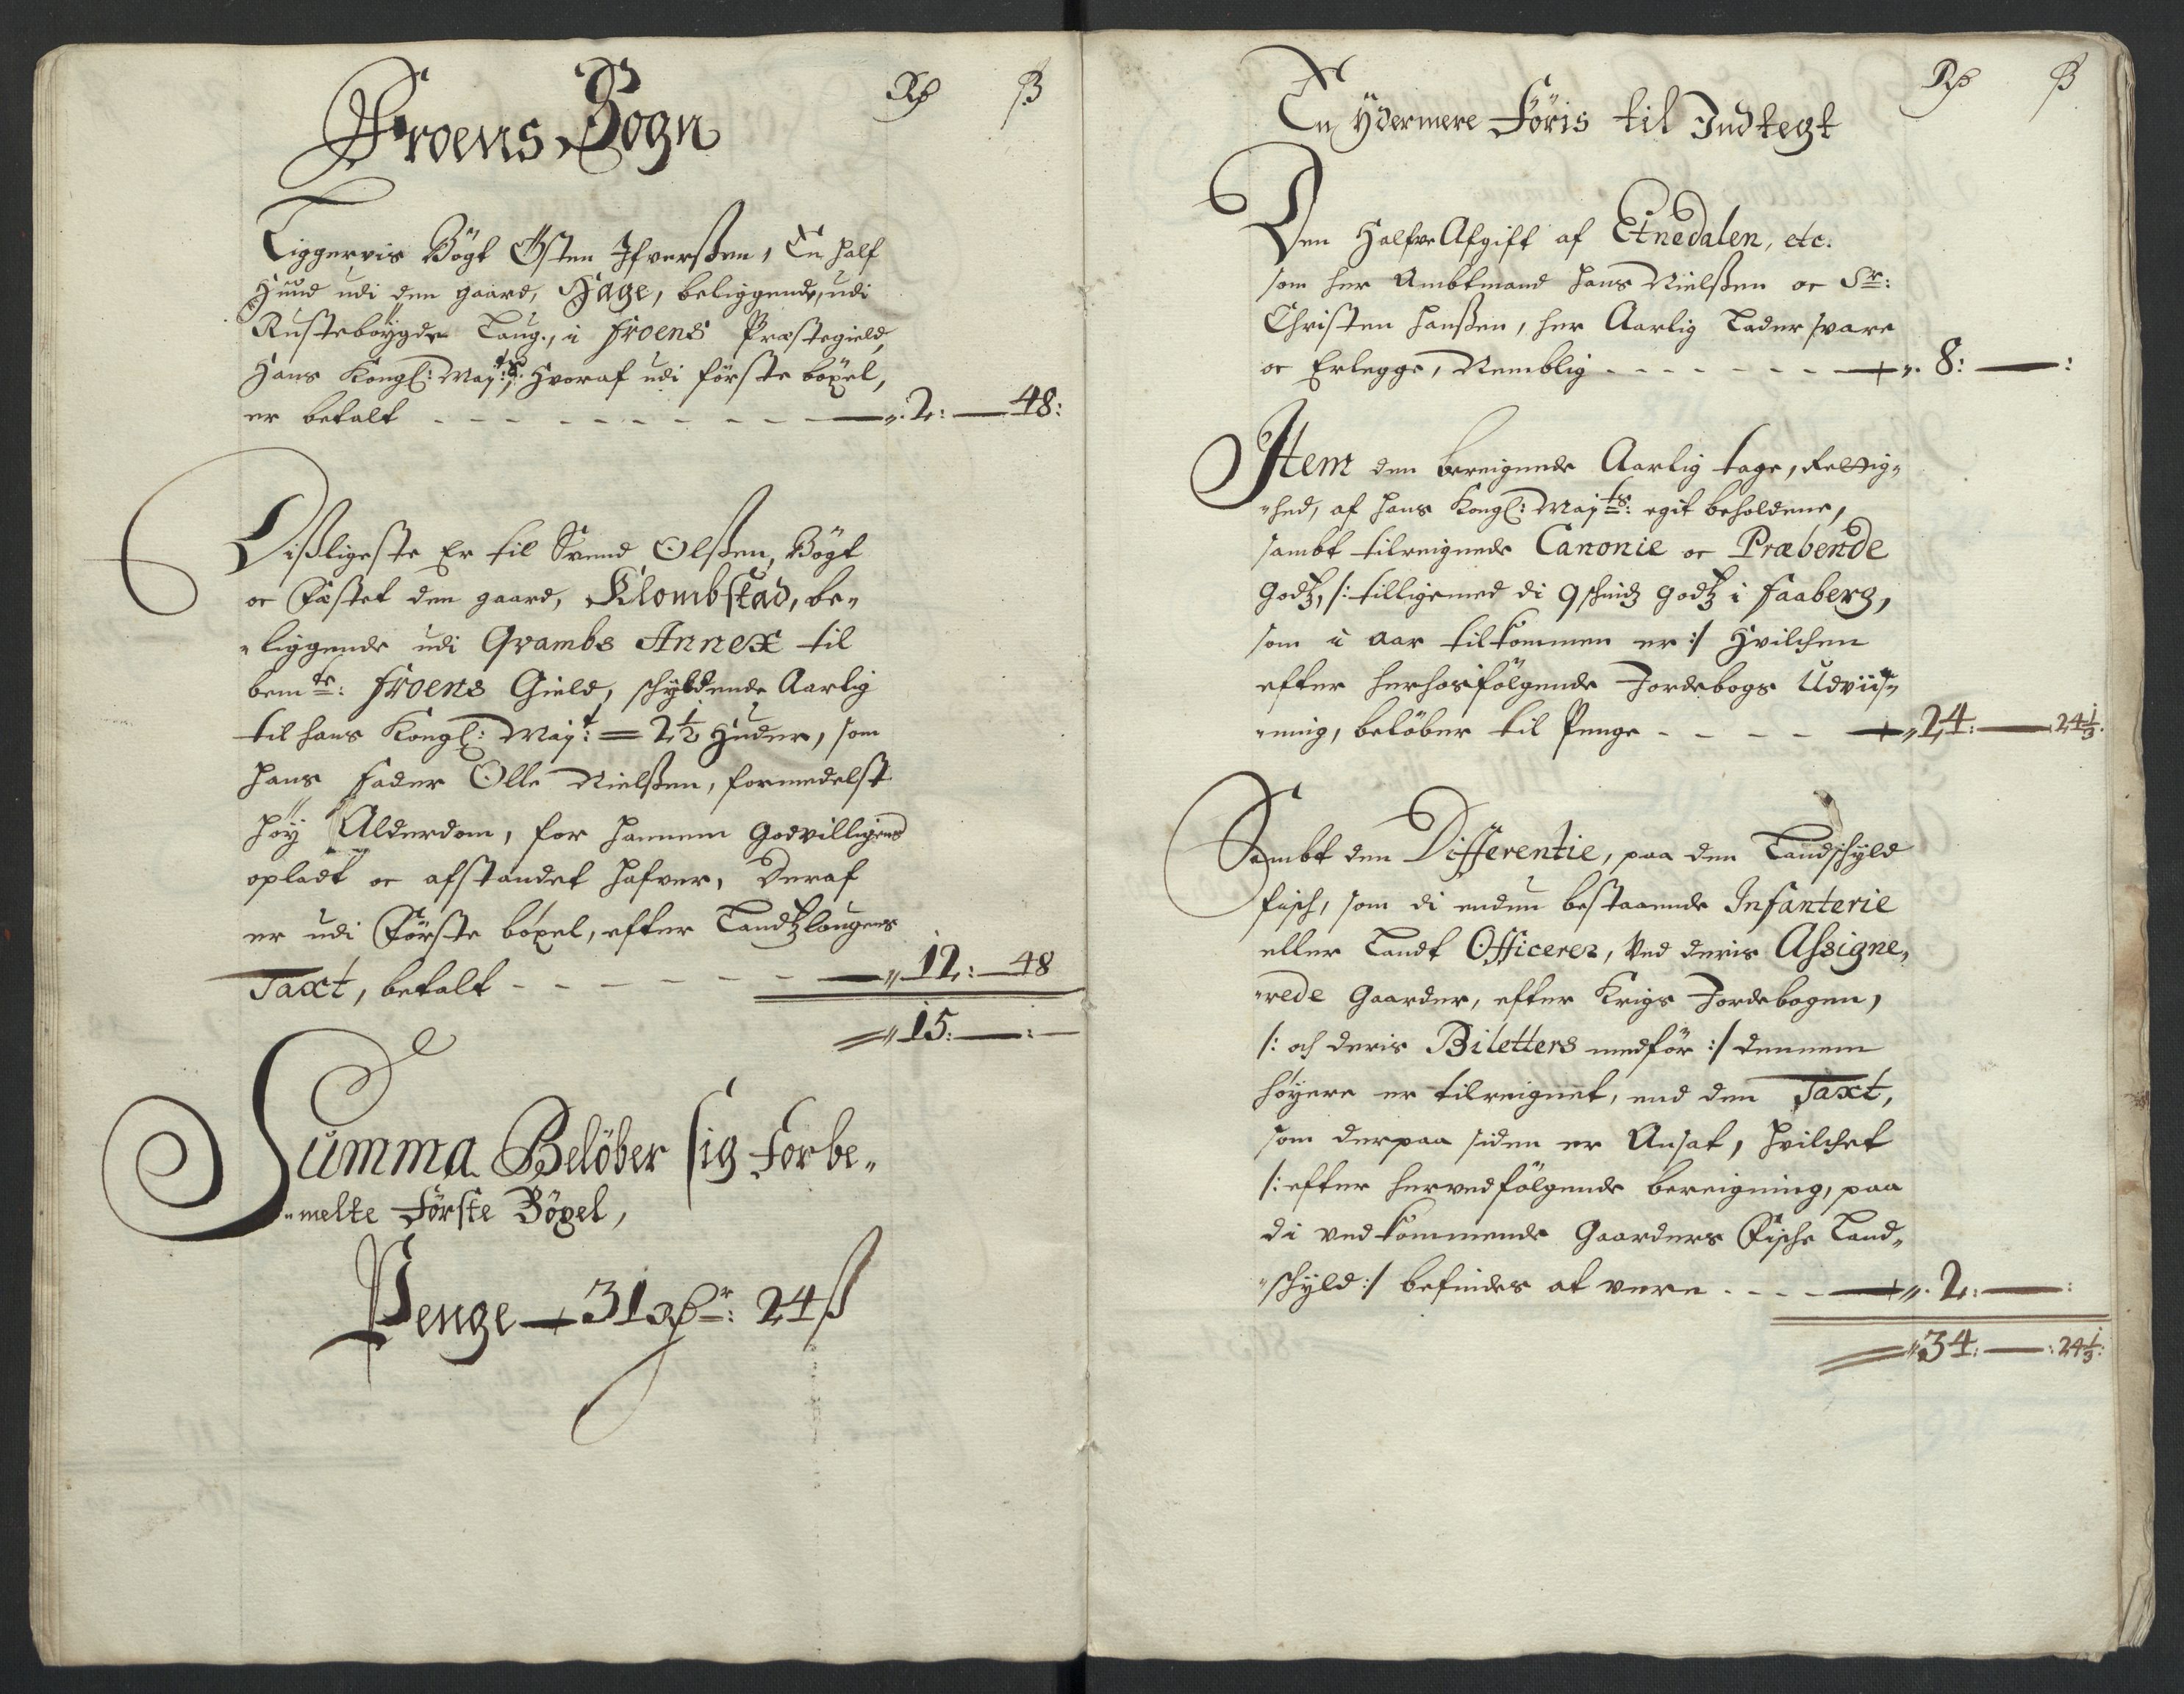 Froens Sogn
Rd ß
Liggervis Bögt Östen Ifverßen, En half
Huud udi den gaard, Hage, beliggende, udi
Rusteböygde Laug, i Froens Præstegield,
Hans Kongl: May:ts Hvoraf udi förste böxel,
er betalt - - - - - - - - - 2: — 48:
Dißligeste Er til Svend Olßen, Bögt
oc Fæstet den gaard, Klombstad, be„
„liggende udi Qvambs Annex til
bemte: Froens Gield, schyldende Aarlig
til hans Kongl: Mayt: = 2 1/2 Huder, som
hans Fader Olle Nielßen, formedelst
höy Alderdom, for hannem Godvilligend
opladt oc afstandet hafver, Deraf
er udi Förste böxel, efter Landtzlougens
Taxt, betalt - - - - - - 12: — 48
15: — : —
Summa Belöber sig Forbe„
„melte Förste Böxel,
Penge — 31 Rdr: 24 ß
Rd ß
En Ydermere Föris til Indtegt
Den Halfve Afgift af Etnedalen, etc:
som her Ambtmand Hans Nielßen oc Sr:
Christen Hanßen, her Aarlig Lader svare
oc Erlegge, Nemblig - - - - - - - 8: — :
Item den bereignede Aarlig tage, Rettig„
„hed, af hans Kongl: Mayts: egit beholdene,
sambt tilreignede Canonie oc Præbende
Godtz, /: tilligemed di 9 schindz Godtz i Faaberg,
som i aar tilkommen er :/ Hvilchen
efter herhosfölgende Jordebogs Udviis„
„ning, belöber til Penge - - - - 24: — 24 1/3.
Sambt den Differentie, paa den Landschyld
fisch, som di endnu bestaaende Infanterie
eller Landt Officerer, Ved deris Assigne„
„rede Gaarder, efter Krigs Jordebogen,
/: och deris Biletters medför :/ dennem
höyere er tilreignet, end den Taxt,
som derpaa siden er Ansat, hvilchet
/: efter hervedfölgende bereigning, paa
di vedkommende Gaarders Fische Land„
„schyld :/ befindes at vere - - - - 2: — :
34: — : 24 1/3: